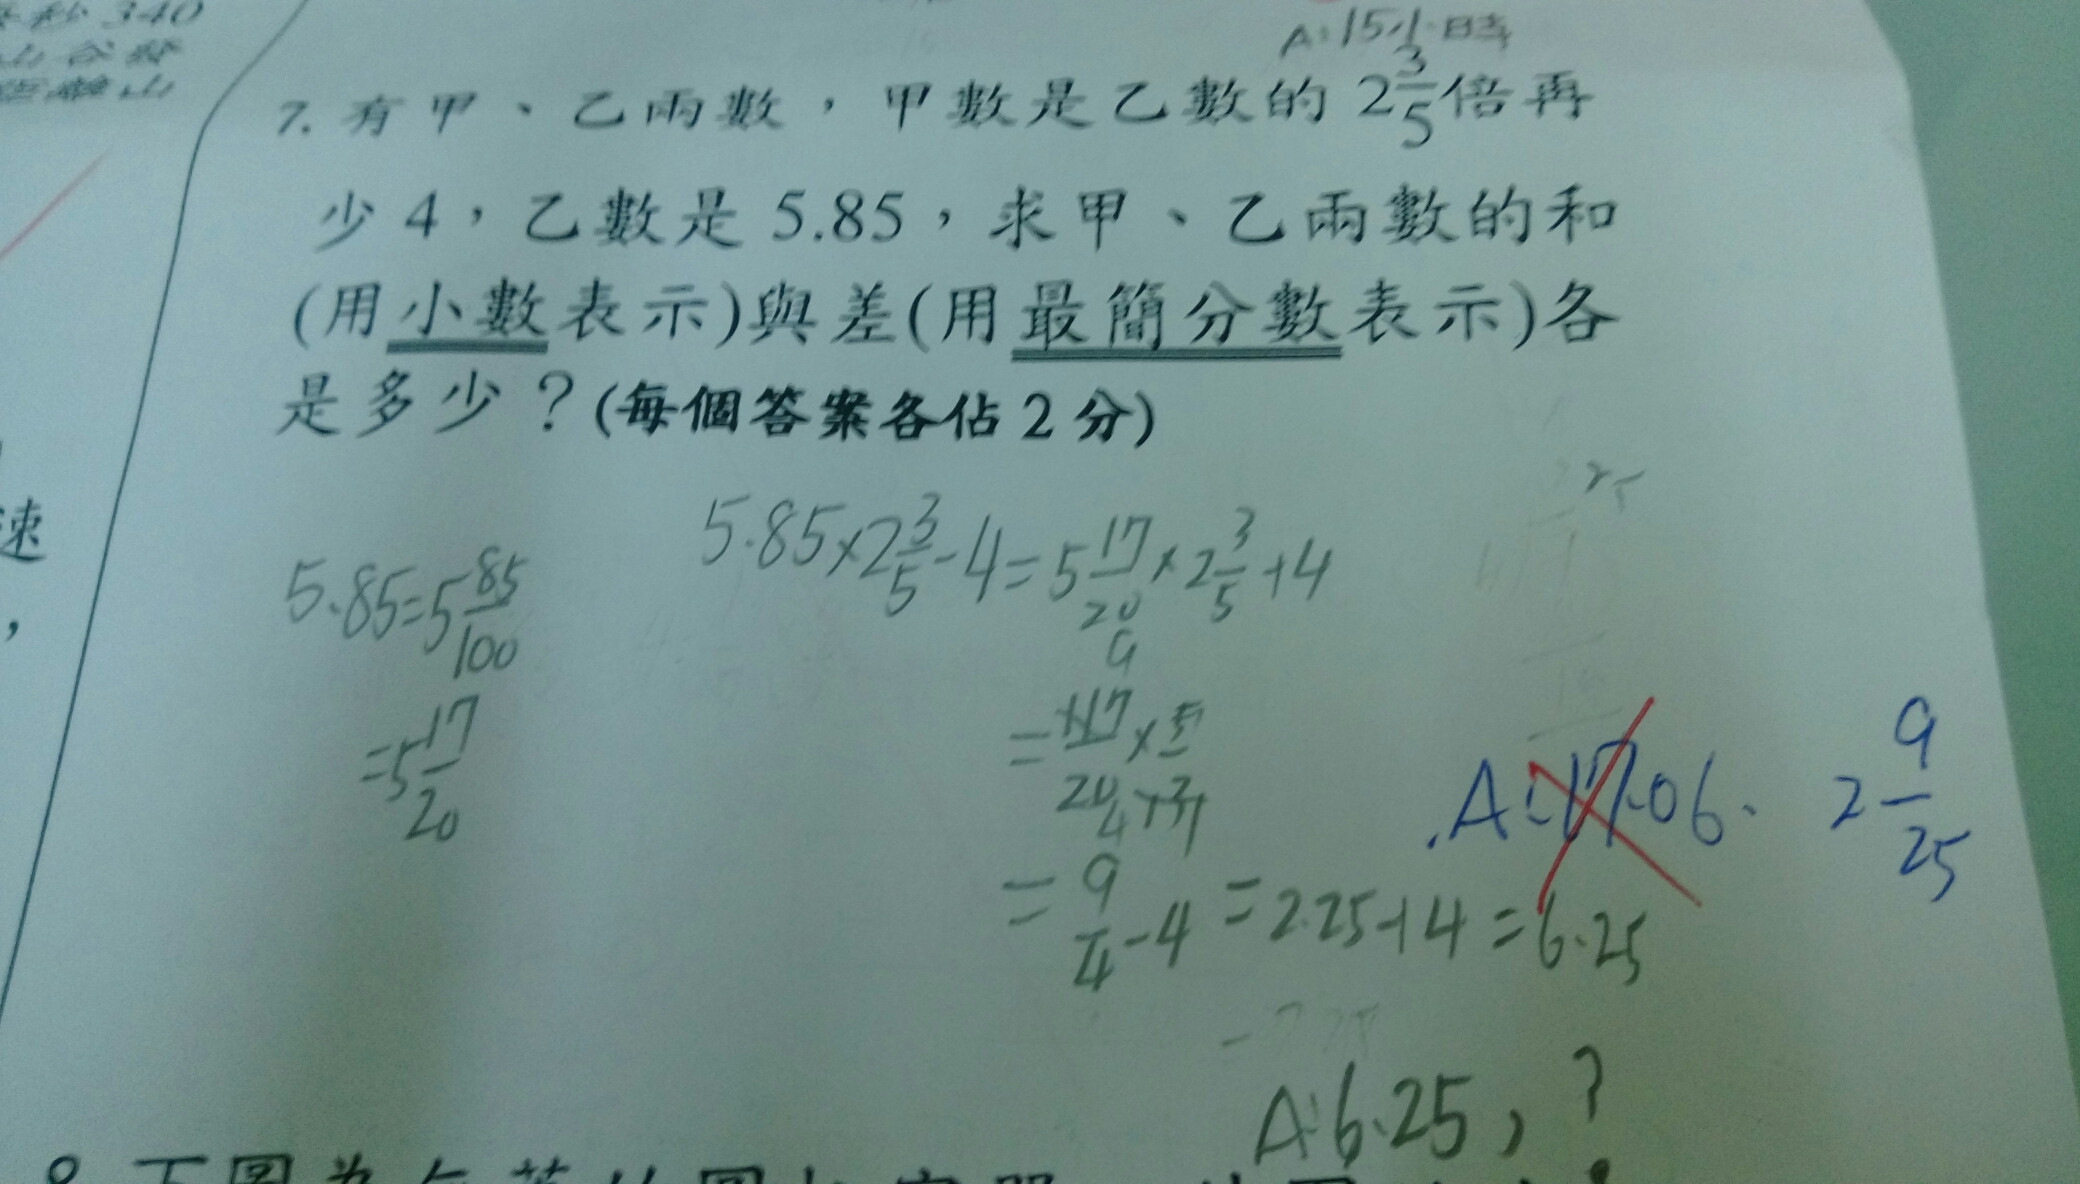 秒340
山谷發
距離山
A:15小時
7. 有甲、乙兩數,甲數是乙數的 2 3/5 倍再
少 4,乙數是 5.85,求甲、乙兩數的和
(用小數表示)與差(用最簡分數表示)各
是多少?(每個答案各佔 2 分)
速
,
5.85=5 85/100
=5 17/20
5.85×2 3/5-4=5 17/20×2 3/5+4
9
=117/20
4
=9/4-4=2.25+4=6.25
A:17.06. 2 9/25
A:6.25, ?
8.